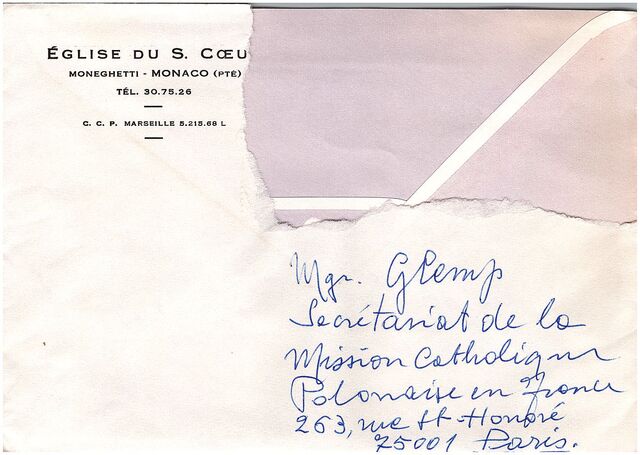 ÉGLISE DU S. CŒU
MONEGHETTI - MONACO (PTÉ)
TÉL. 30.75.26
C. C. P. MARSEILLE 5.215.68 L
Mgr. Glemp
Secrétariat de la
Mission Catholique
Polonaise en France
263, rue St-Honoré
75001 Paris.